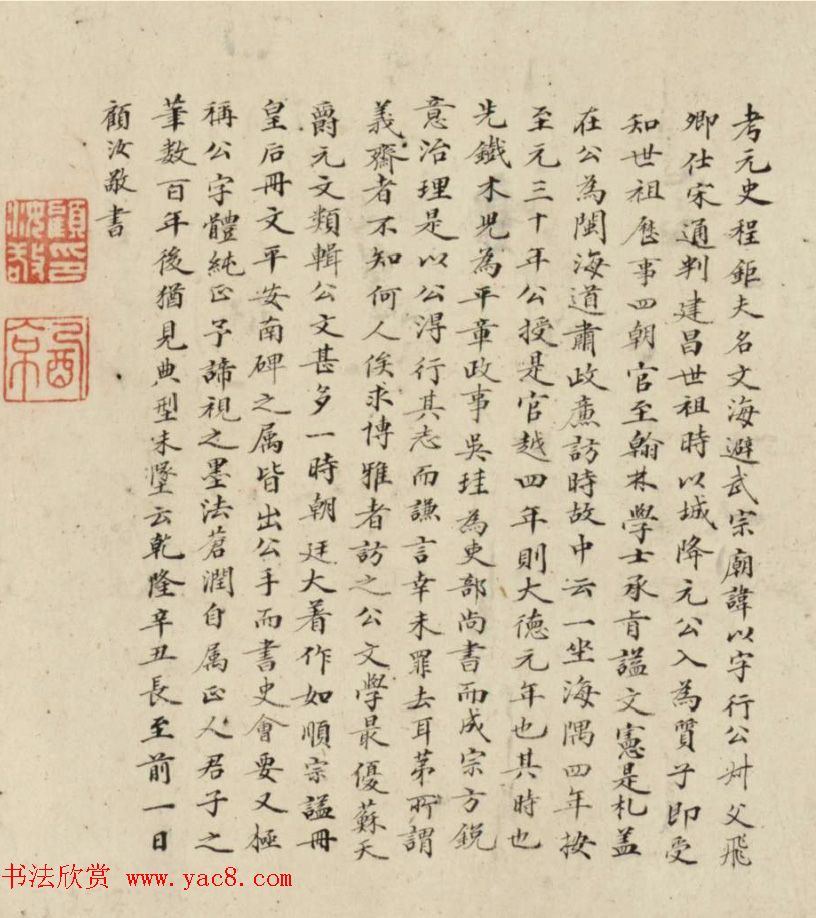 考元史程鉅夫名文海避武宗廟諱以字行公叔父飛
卿仕宋通判建昌世祖時以城降元公入為質子即受
知世祖歷事四朝官至翰林學士承旨諡文憲是札蓋
在公為閩海道肅政廉訪時故中云一坐海隅四年按
至元三十年公授是官越四年則大德元年也其時也
先鐵木兒為平章政事吳珪為吏部尚書而成宗方銳
意治理是以公得行其志而謙言幸未罪去耳苐所謂
義齋者不知何人俟求博雅者訪之公文學最優蘇天
爵元文類輯公文甚多一時朝廷大著作如順宗諡冊
皇后冊文平安南碑之属皆出公手而書史會要又極
稱公字體純正予諦視之墨法蒼潤自属正人君子之
筆数百年後猶見典型未墜云乾隆辛丑長至前一日
顧汝敬書
顧印汝敬
书法欣赏 www.yac8.com